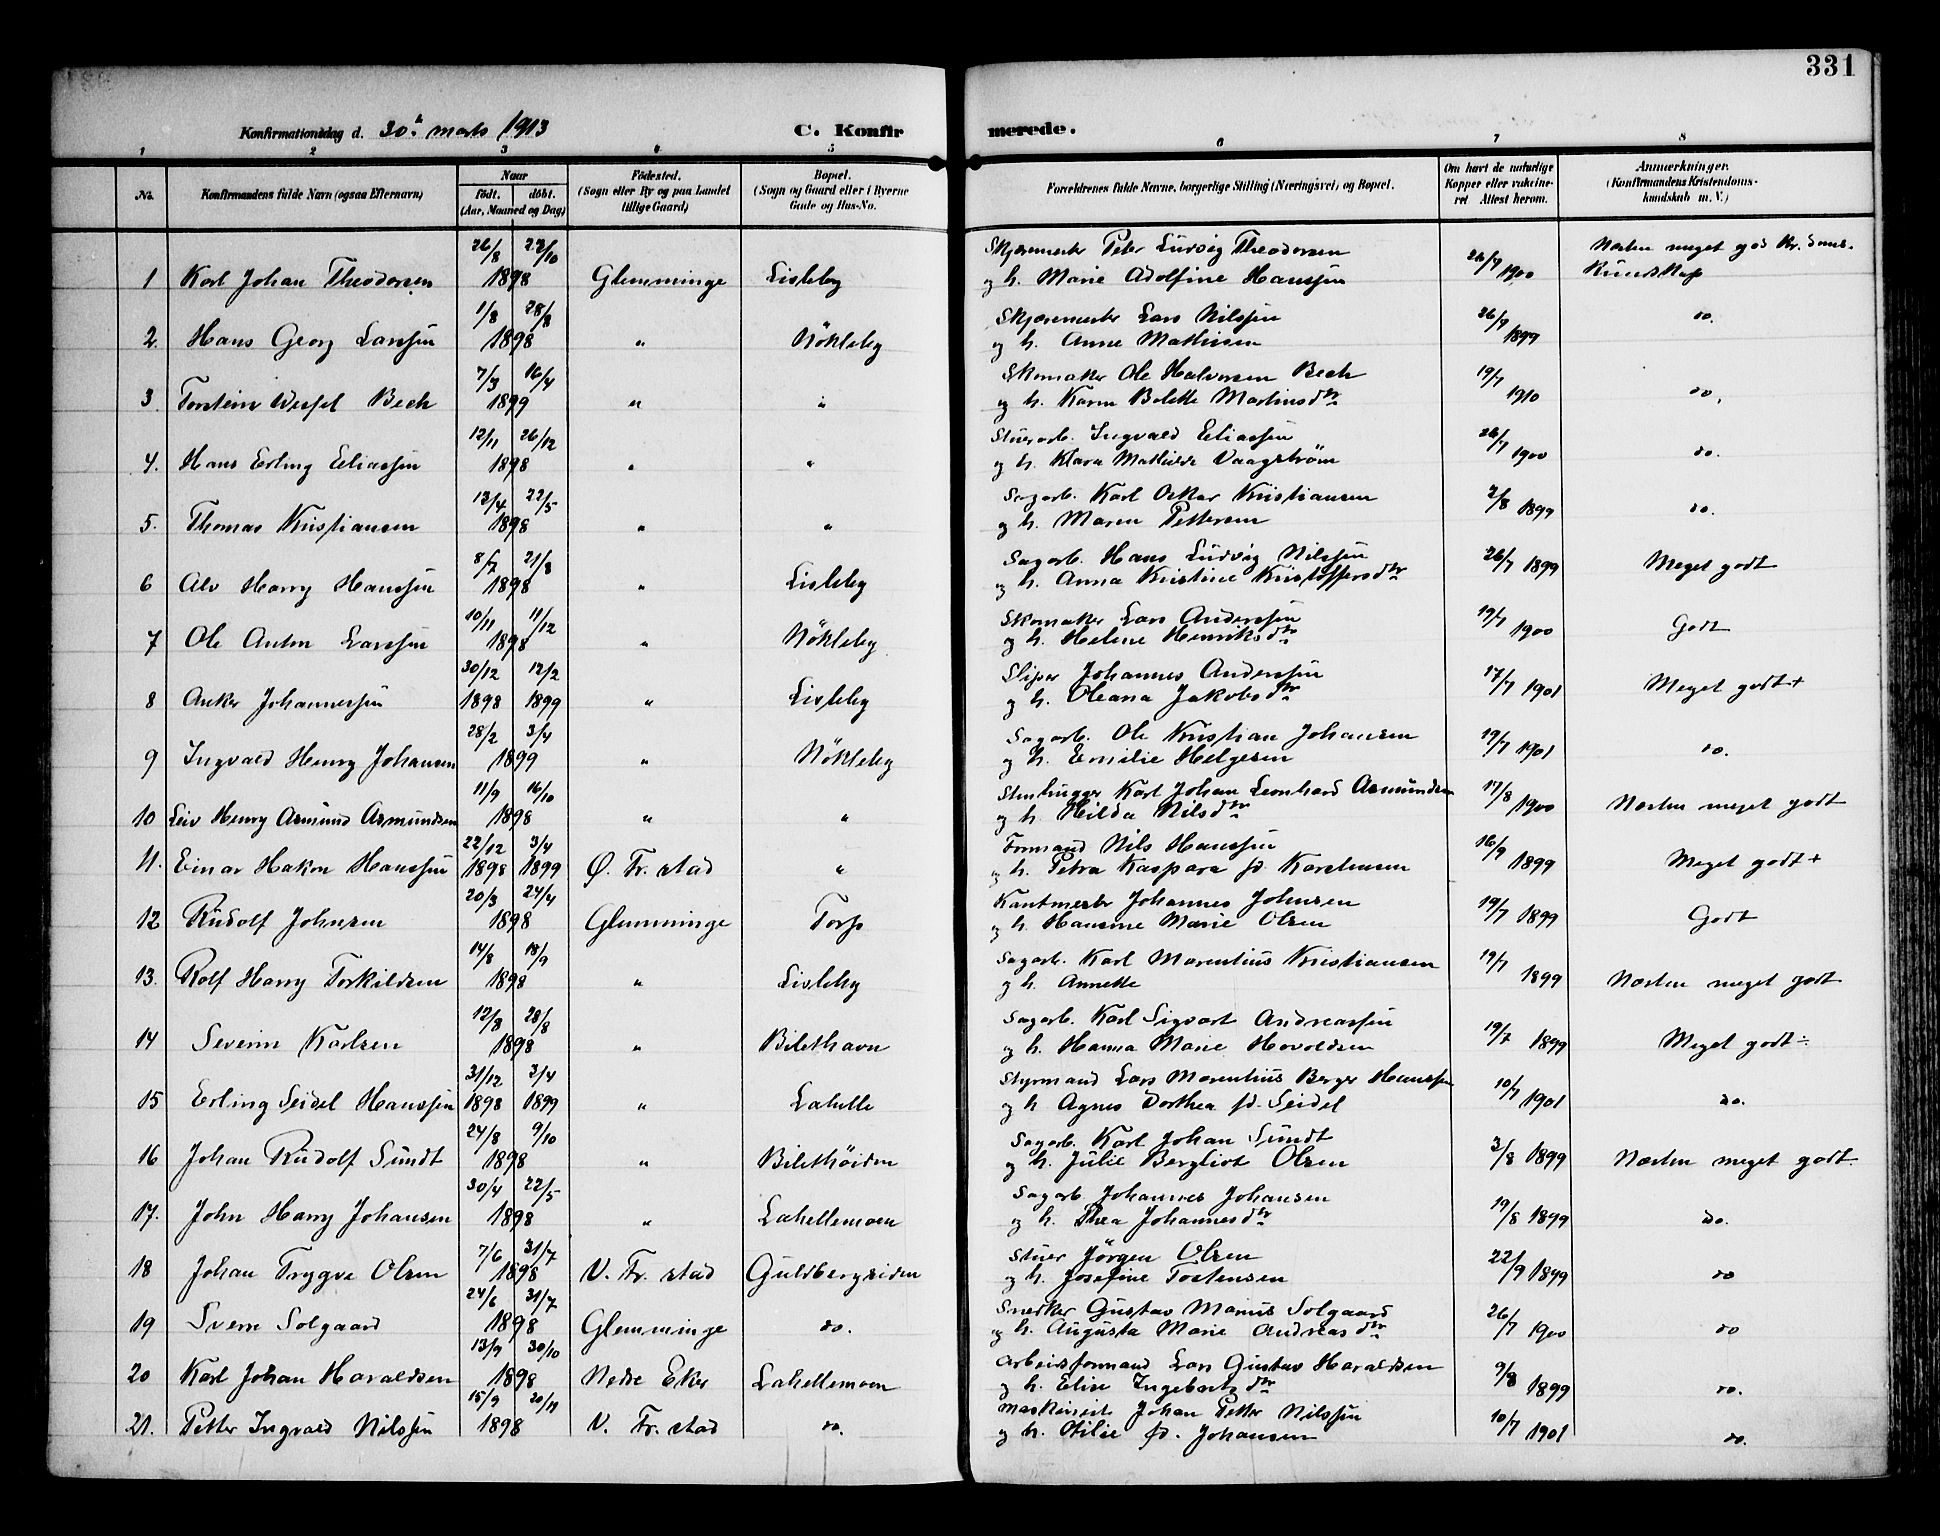 331
Konfirmationsdag d. 30.te marts 1913 C. Konfirmerede.
1 2 3 4 5 6 7 8
No. Konfirmandens fulde Navn (ogsaa Efternavn) Naar født. døbt. (Aar, Maaned og Dag) Fødested. (Sogn eller By og paa Landet tillige Gaard) Bopæl. (Sogn og Gaard eller i Byerne Gade og Hus-No. Forældrenes fulde Navne, borgerlige Stilling (Næringsvei) og Bopæl. Om havt de naturlige Kopper eller vakcineret Attest herom. Anmærkninger. (Konfirmandens Kristendomskundskab m. V.)
26/8 23/10 Skjæremester Peter Ludvig Theodorsen Næsten meget god Kr.doms-
1 Karl Johan Theodorsen 1898 Glemminge Lisleby og h. Marie Adolfine Hanssen 26/7 1900 Kundskap
1/8 28/8 Skjæremester Lars Nilssen
2. Hans Georg Larssen 1898 " Nökleby og h. Anne Mathisen 26/7 1899 do.
7/3 16/4 Skomaker Ole Halvorsen Bech
3 Torstein Wessel Bech 1899 " " og h. Karen Bolette Martinsdtr 19/7 1910 do.
12/11 26/12 Stuerarb. Ingvald Eliassen
4. Hans Erling Eliassen 1898 " " og h. Klara Mathilde Vaagström 26/7 1900 do.
13/4 22/5 Sagarb. Karl Oskar Kristiansen
5. Thomas Kristiansen 1898 " " og h. Maren Pettersen 2/8 1899 do.
8/7 21/8 Sagarb. Hans Ludvig Nilssen
6 Alv Harry Hanssen 1898 " Lisleby og h. Anna Kristine Kristoffersdtr 26/7 1899 Meget godt
10/11 11/12 Skomaker Lars Anderssen
7 Ole Anton Larssen 1898 " Nökleby og h. Helene Henriksdtr 19/7 1900 Godt
30/12 12/2 Sliper Johannes Anderssen
8 Anker Johannessen 1898 1899 " Lisleby og h. Oleana Jakobsdtr 17/7 1901 Meget godt+
28/2 3/4 Sagarb. Ole Kristian Johansen
9 Ingvald Henry Johansen 1899 " Nökleby og h. Emilie Helgesen 19/7 1901 do.
11/9 16/10 Stenhugger Karl Johan Leonhard Asmundsen
10 Leiv Henry Asmund Asmundsen 1898 " " og h. Hilda Nilsdtr 17/8 1900 Næsten meget godt
22/12 3/4 Formand Nils Hanssen
11. Einar Hakon Hanssen 1898 1899 Ø. Fr. stad " og h. Petra Kaspara fd. Karstensen 16/9 1899 Meget godt+
20/3 24/4 Kantmester Johannes Johnsen
12 Rudolf Johnsen 1898 Glemminge Torp og h. Hansine Marie Olsen 19/7 1899 Godt
14/8 18/9 Sagarb. Karl Marentius Kristiansen
13. Rolf Harry Torkildsen 1898 " Lisleby og h. Annette 19/7 1899 Næsten meget godt
12/8 28/8 Sagarb. Karl Sigvart Andreassen
14 Severin Karlsen 1898 " Bilethavn og h. Hanna Marie Havoldsen 19/7 1899 Meget godt÷
31/12 3/4 Styrmand Lars Marentius Berger Hanssen
15 Erling Seidel Hanssen 1898 1899 " Lahelle og h Agnes Dorthea fd. Seidel 10/7 1901 do.
24/8 9/10 Sagarb. Karl Johan Sundt
16 Johan Rudolf Sundt 1898 " Bilethöiden og h. Julie Bergliot Olsen 3/8 1899 Næsten meget godt.
30/4 22/5 Sagarb Johannes Johansen
17. John Harry Johansen 1898 " Lahellemoen og h. Thea Johannesdtr 19/8 1899 do.
7/6 31/7 Stuer Jörgen Olsen
18 Johan Trygve Olsen 1898 V. Fr. stad Guldbergsiden og h. Josefine Tostensen 22/9 1899 do
24/6 31/7 Snedker Gustav Marius Solgaard
19 Svern Solgaard 1898 Glemminge do. og h. Augusta Marie Andreasdtr 26/7 1900 do
13/9 30/10 Arbeidsformand Lars Gustav Haraldsen
20 Karl Johan Haraldsen 1898 Nedre Eker Lahellemoen og h. Elise Ingebretsdtr 9/8 1899 do.
15/9 20/11 Maskinist Johan Petter Nilssen
21. Petter Ingvald Nilssen 1898 V. Fr. stad do. og h. Otilie fd. Johansen 10/7 1901 do.